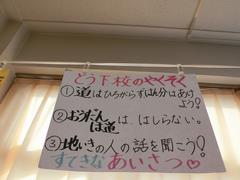 どう下校のやくそく
①道はひろがらずはん分はあけ
よう!
②おうだん
ほ道 は、はしらない。
③地いきの人の話を聞こう!
すてきなあいさつ♡